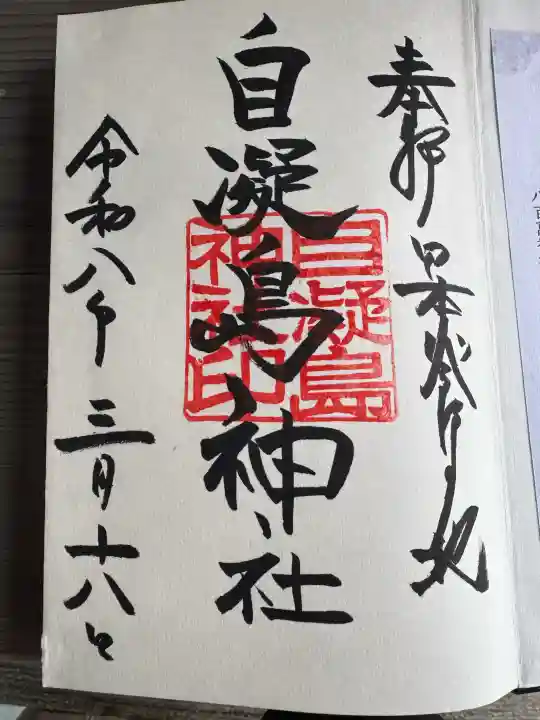 奉拝 日本発祥の地
自凝島神社
自凝島
神社印
令和八年 三月十八日